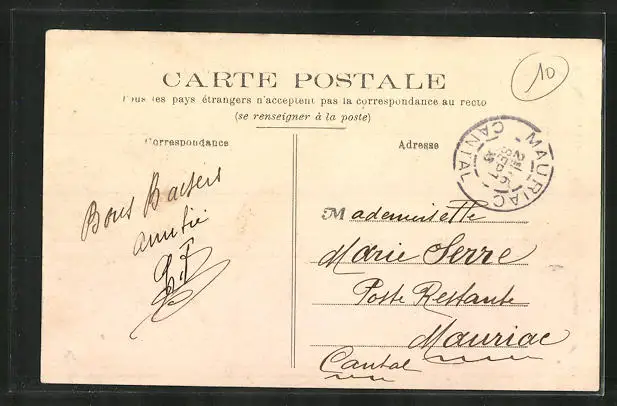 10
CARTE POSTALE
Tous les pays étrangers n'acceptent pas la correspondance au recto
(se renseigner à la poste)
Correspondance
Adresse
MAURIAC
CANTAL
Bons Baisers
amitié
Mademoiselle
Marie Serre
Poste Restante
Mauriac
Cantal